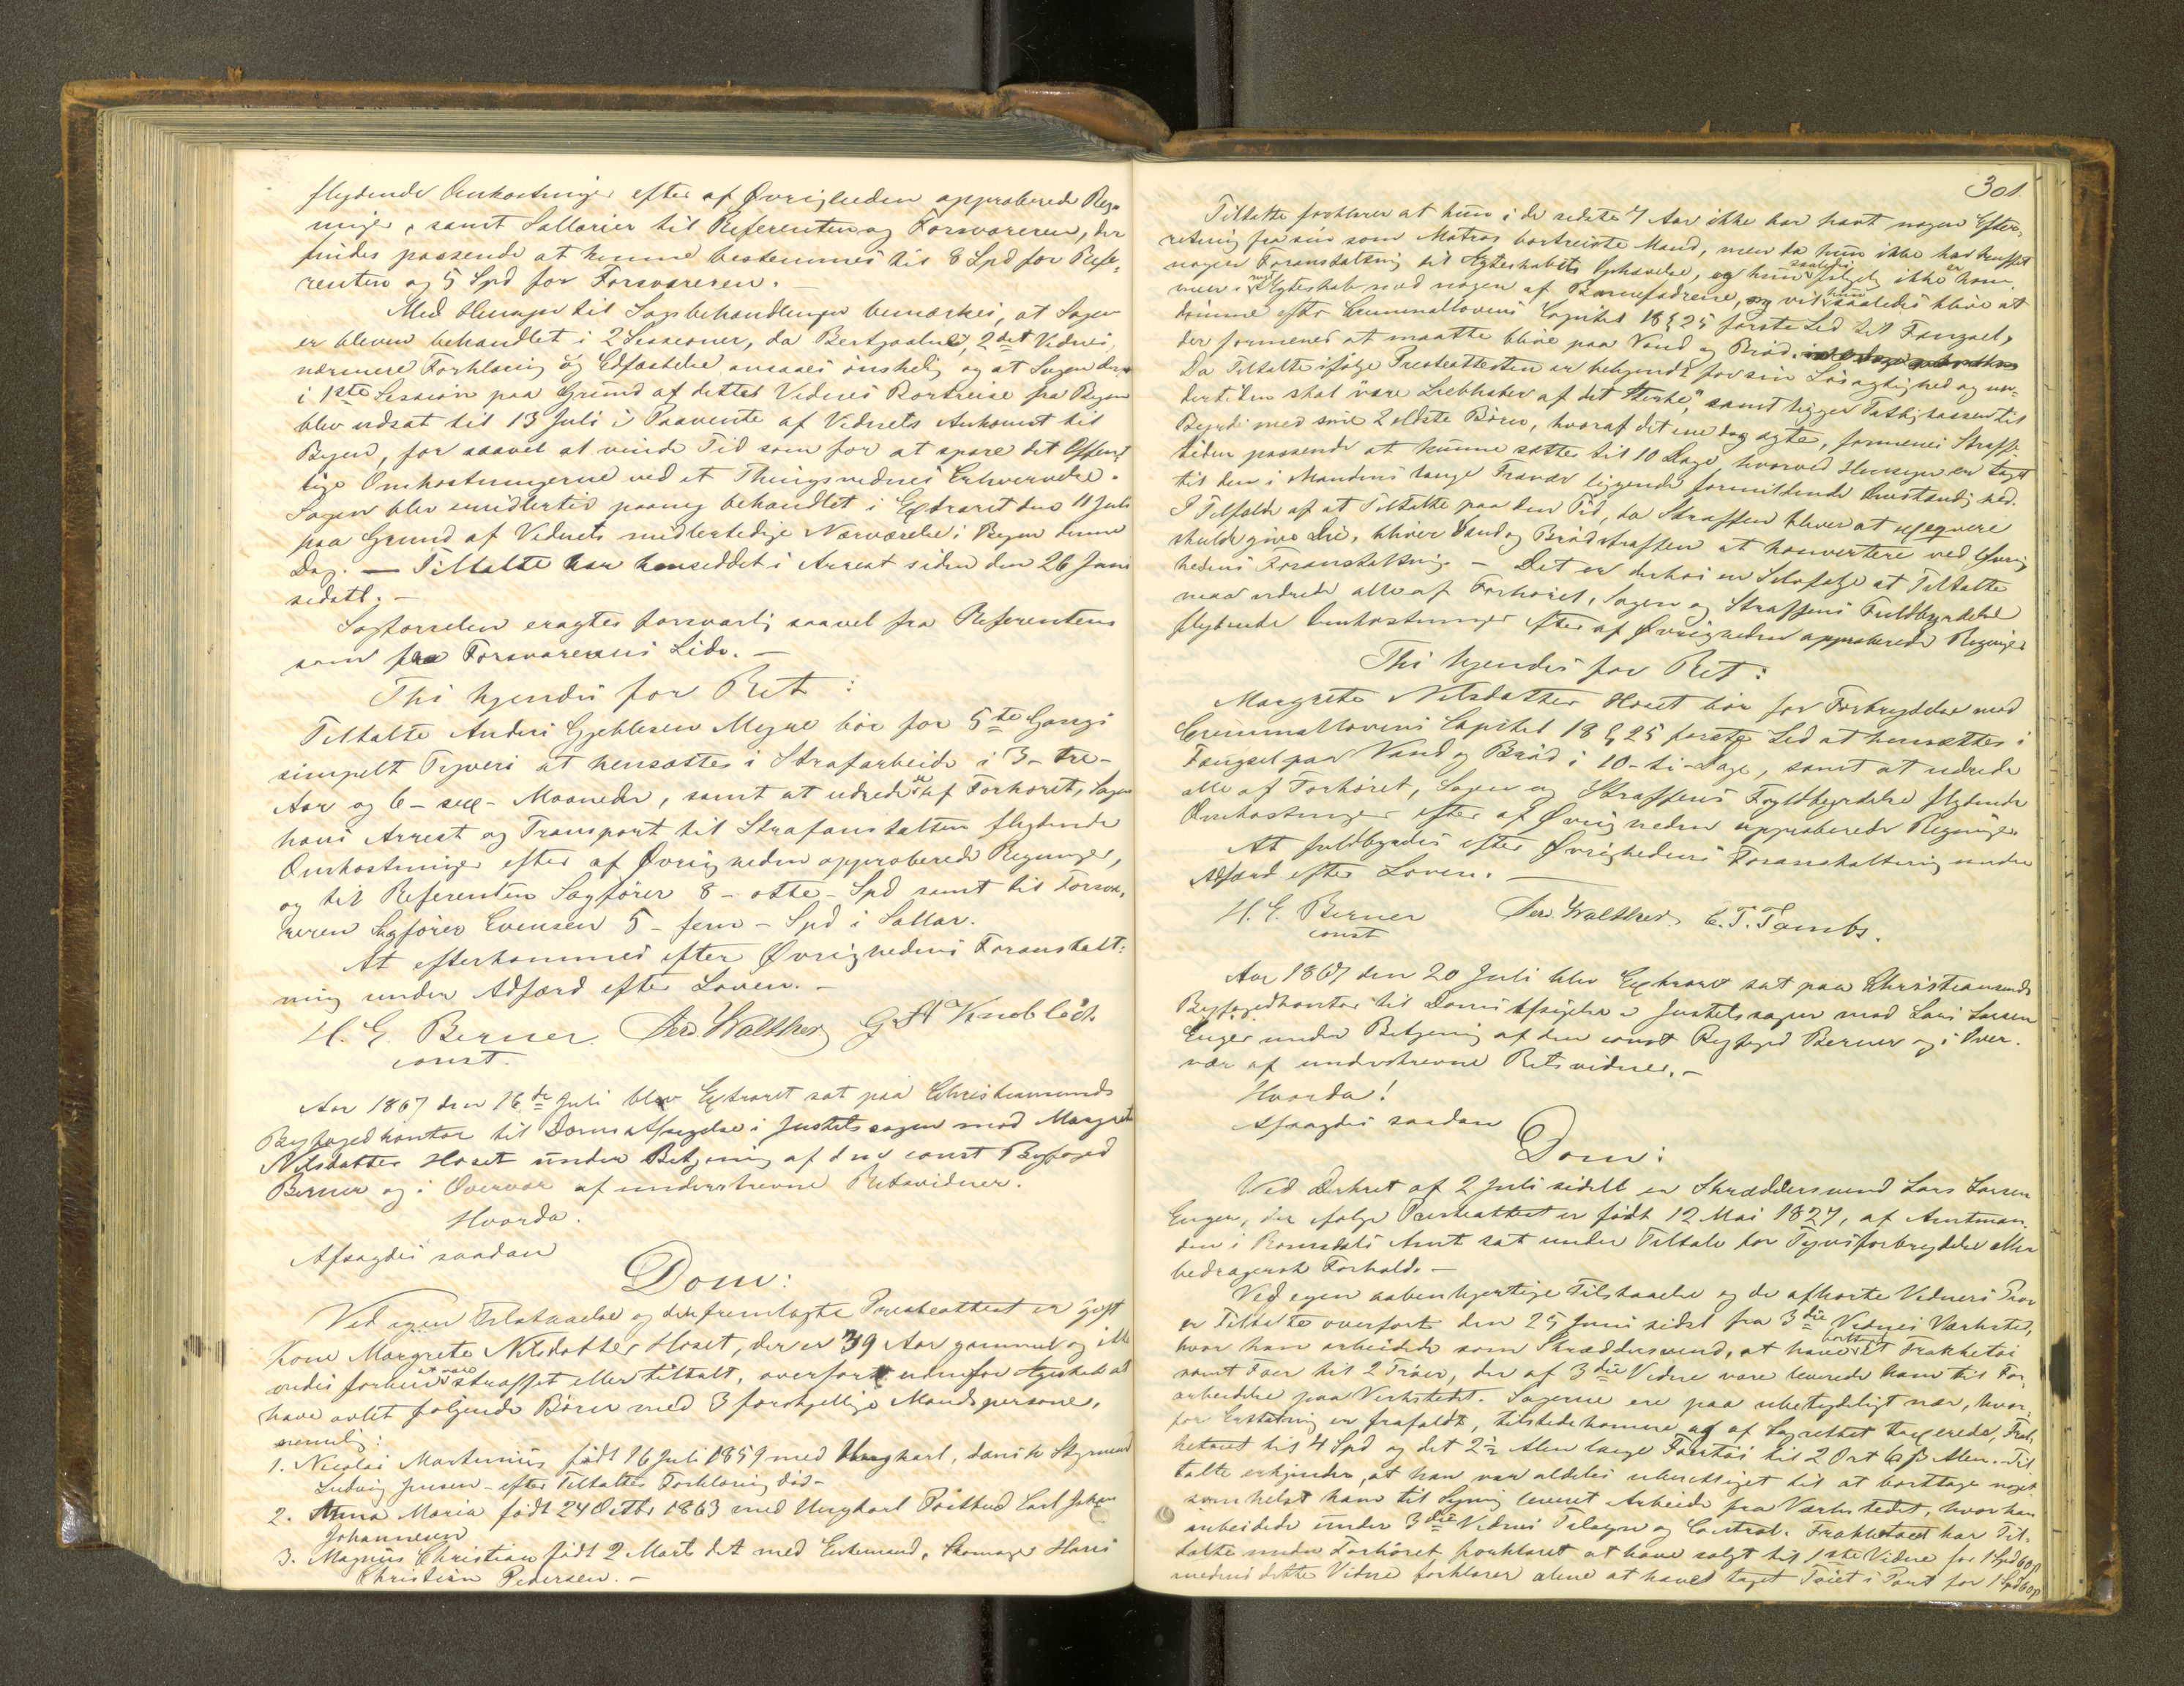 flydende Omkostninger efter af Øvrigheden approberede Reg-
ninger, samt Sallarier til Referenten og Forsvareren, der
findes passende at kunne bestemmes til 8 Spd for Refe-
renten og 5 Spd for Forsvareren. –
Med Hensyn til Sagsbehandlingen bemærkes, at Sagen
er bleven behandlet i 2 Sessioner, da Bestjaalne, 2det Vidnes,
nærmere Forklaring og Edfæstelse ansaaes ønskelig og at Sagen der
i 1ste Session paa Grund af dettes Vidnes Bortreise fra Byen
blev udsat til 13 Juli i Paavente af Vidnets Ankomst til
Byen, for saavel at vinde Tid som for at spare det Offent-
lige Omkostningerne ved et Thingsvidnes Erhvervelse.
Sagen blev imidlertid paany behandlet i Extraret den 11 Juli
paa Grund af Vidnets midlertidige Nærværelse i Byen denne
Dag. – Tiltalte har henseddet i Arrest siden den 26 Juni
sidstl. –
Sagførselen eragtes forsvarlig saavel fra Referentens
som fra Forsvarerens Side. –
Thi kjendes for Ret:
Tiltalte Anders Gjeblesen Megne bør for 5te Gangs
simpelt Tyveri at hensættes i Strafarbeide i 3 – tre –
Aar og 6 – sex – Maaneder, samt at udrede de af Forhøret, Sagen
hans Arrest og Transport til Strafanstalten flydende
Omkostninger efter af Øvrigheden approberede Regninger,
og til Referenten Sagfører 8 – otte – Spd samt til Forsva-
reren Sagfører Evensen 5 – fem – Spd i Sallar.
At efterkommes efter Øvrighedens Foranstalt-
ning under Adfærd efter Loven. –
H. E. Berner. Ferd. Walther G A Knobloch
const.
Aar 1867 den 16de Juli blev Extraret sat paa Christiansunds
Byfogedkontor til Doms Afsigelse i Justitssagen mod Margrete
Nilsdatter Hoset under Betjening af den const Byfoged
Berner og i Overvær af underskrevne Retsvidner.
Hvorda.
Afsagdes saadan
Dom:
Ved egen Tilstaaelse og den fremlagte Presteattest er gift
Kone Margrete Nilsdatter Hoset, der er 39 Aar gammel og ikke
vides forhen at være straffet eller tiltalt, overført udenfor Ægteskab at
have avlet følgende Børn med 3 forskjellige Mandspersoner,
nemlig:
1. Nicolai Martinius født 16 Juli 1859 med Ungkarl, dansk Styrmand
Ludvig Jensen – efter Tiltaltes Forklaring død –
2. Anna Maria født 24 Octbr 1863 med Ungkarl Postbud Carl Johan
Johannesen
3. Magnus Christian født 2 Marts d A med Enkemand, Skomager Hans
Christian Pedersen. –
301.
Tiltalte forklarer at hun i de sidste 7 Aar ikke har havt nogen Efter-
retning fra sin som Matros bortreiste Mand, men da hun ikke har truffet
nogen Foranstaltning til Ægteskabets Ophævelse, og hun saaledes følgelig ikke er kom-
men i nyt Ægteskab med nogen af Barnefædrene, vil hun saaledes blive at
dømme efter Criminallovens Capitel 18 § 25 første Led til Fængsel,
der formenes at maatte blive paa Vand og Brød.
Da Tiltalte ifølge Presteattesten er bekjendt for sin Løsagtighed og un-
dertiden skal være Liebhaber af det "sterke", samt ligger Fattigkassen til
Byrde med sine 2 eldste Børn, hvoraf det ene dog ægte, formenes Straffe-
tiden passende at kunne sættes til 10 Dage, hvorved Hensyn er tagt
til den i Mandens lange Fravær liggende formildende Omstændighed.
I Tilfælde af at Tiltalte paa den Tid, da Straffen bliver at exequere
skulde give Die, bliver Vand og Brødstraffen at konvertere ved Øvrig-
hedens Foranstaltning. – Det er derhos en Selvfølge at Tiltalte
maa udrede alle af Forhøret, Sagen og Straffens Fuldbyrdelse
flydende Omkostninger efter af Øvrigheden approberede Regninger
Thi kjendes for Ret:
Margrete Nilsdatter Hoset bør for Forbrydelse mod
Criminallovens Capitel 18 § 25 første Led at hensættes i
Fængsel paa Vand og Brød i 10 – ti – Dage, samt at udrede
alle af Forhøret, Sagen og Straffens Fuldbyrdelse flydende
Omkostninger efter af Øvrigheden approberede Regninger.
At fuldbyrdes efter Øvrighedens Foranstaltning under
Adfærd efter Loven. –
H. E. Berner Ferd. Walther C. T. Tambs.
const
Aar 1867 den 20 Juli blev Extraret sat paa Christiansunds
Byfogedkontor til Doms Afsigelse i Justitssagen mod Lars Larsen
Enger under Betjening af den const Byfoged Berner og i Over-
vær af underskrevne Retsvidner. –
Hvorda!
Afsagdes saadan
Dom:
Ved Dekret af 2 Juli sidstl er Skræddersvend Lars Larsen
Enger, der ifølge Presteattest er født 12 Mai 1827, af Amtman-
den i Romsdals Amt sat under Tiltale for Tyvsforbrydelse eller
bedragersk Forhold. –
Ved egen aabenhjertige Tilstaaelse og de afhørte Vidners Prov
er Tiltalte overført den 25 Juni sidst fra 3die Vidnes Værksted,
hvor han arbeidede som Skræddersvend, at have borttaget et Frakketøi
samt Foer til 2 Trøier, der af 3die Vidne vare leverede ham til For-
arbeidelse paa Verkstedet. Sagerne ere paa ubetydeligt nær, hvor-
for Erstatning er frafaldt, tilstedekomne og af Lagrettet taxerede, Frak-
ketøiet til 4 Spd og det 2½ Alen lange Foertøi til 2 Ort 6 β Alen. Til-
talte erkjender, at han var aldeles uberettiget til at borttage noget
somhelst ham til Syning leveret Arbeide fra Værkstedet, hvor han
arbeidede under 3die Vidnes Tilsyn og Control. Frakketøiet har Til-
talte under Forhøret forklaret at have solgt til 1ste Vidne for 1 Spd 60 β
medens dette Vidne forklarer alene at have taget Tøiet i Pant for 1 Spd 60 β